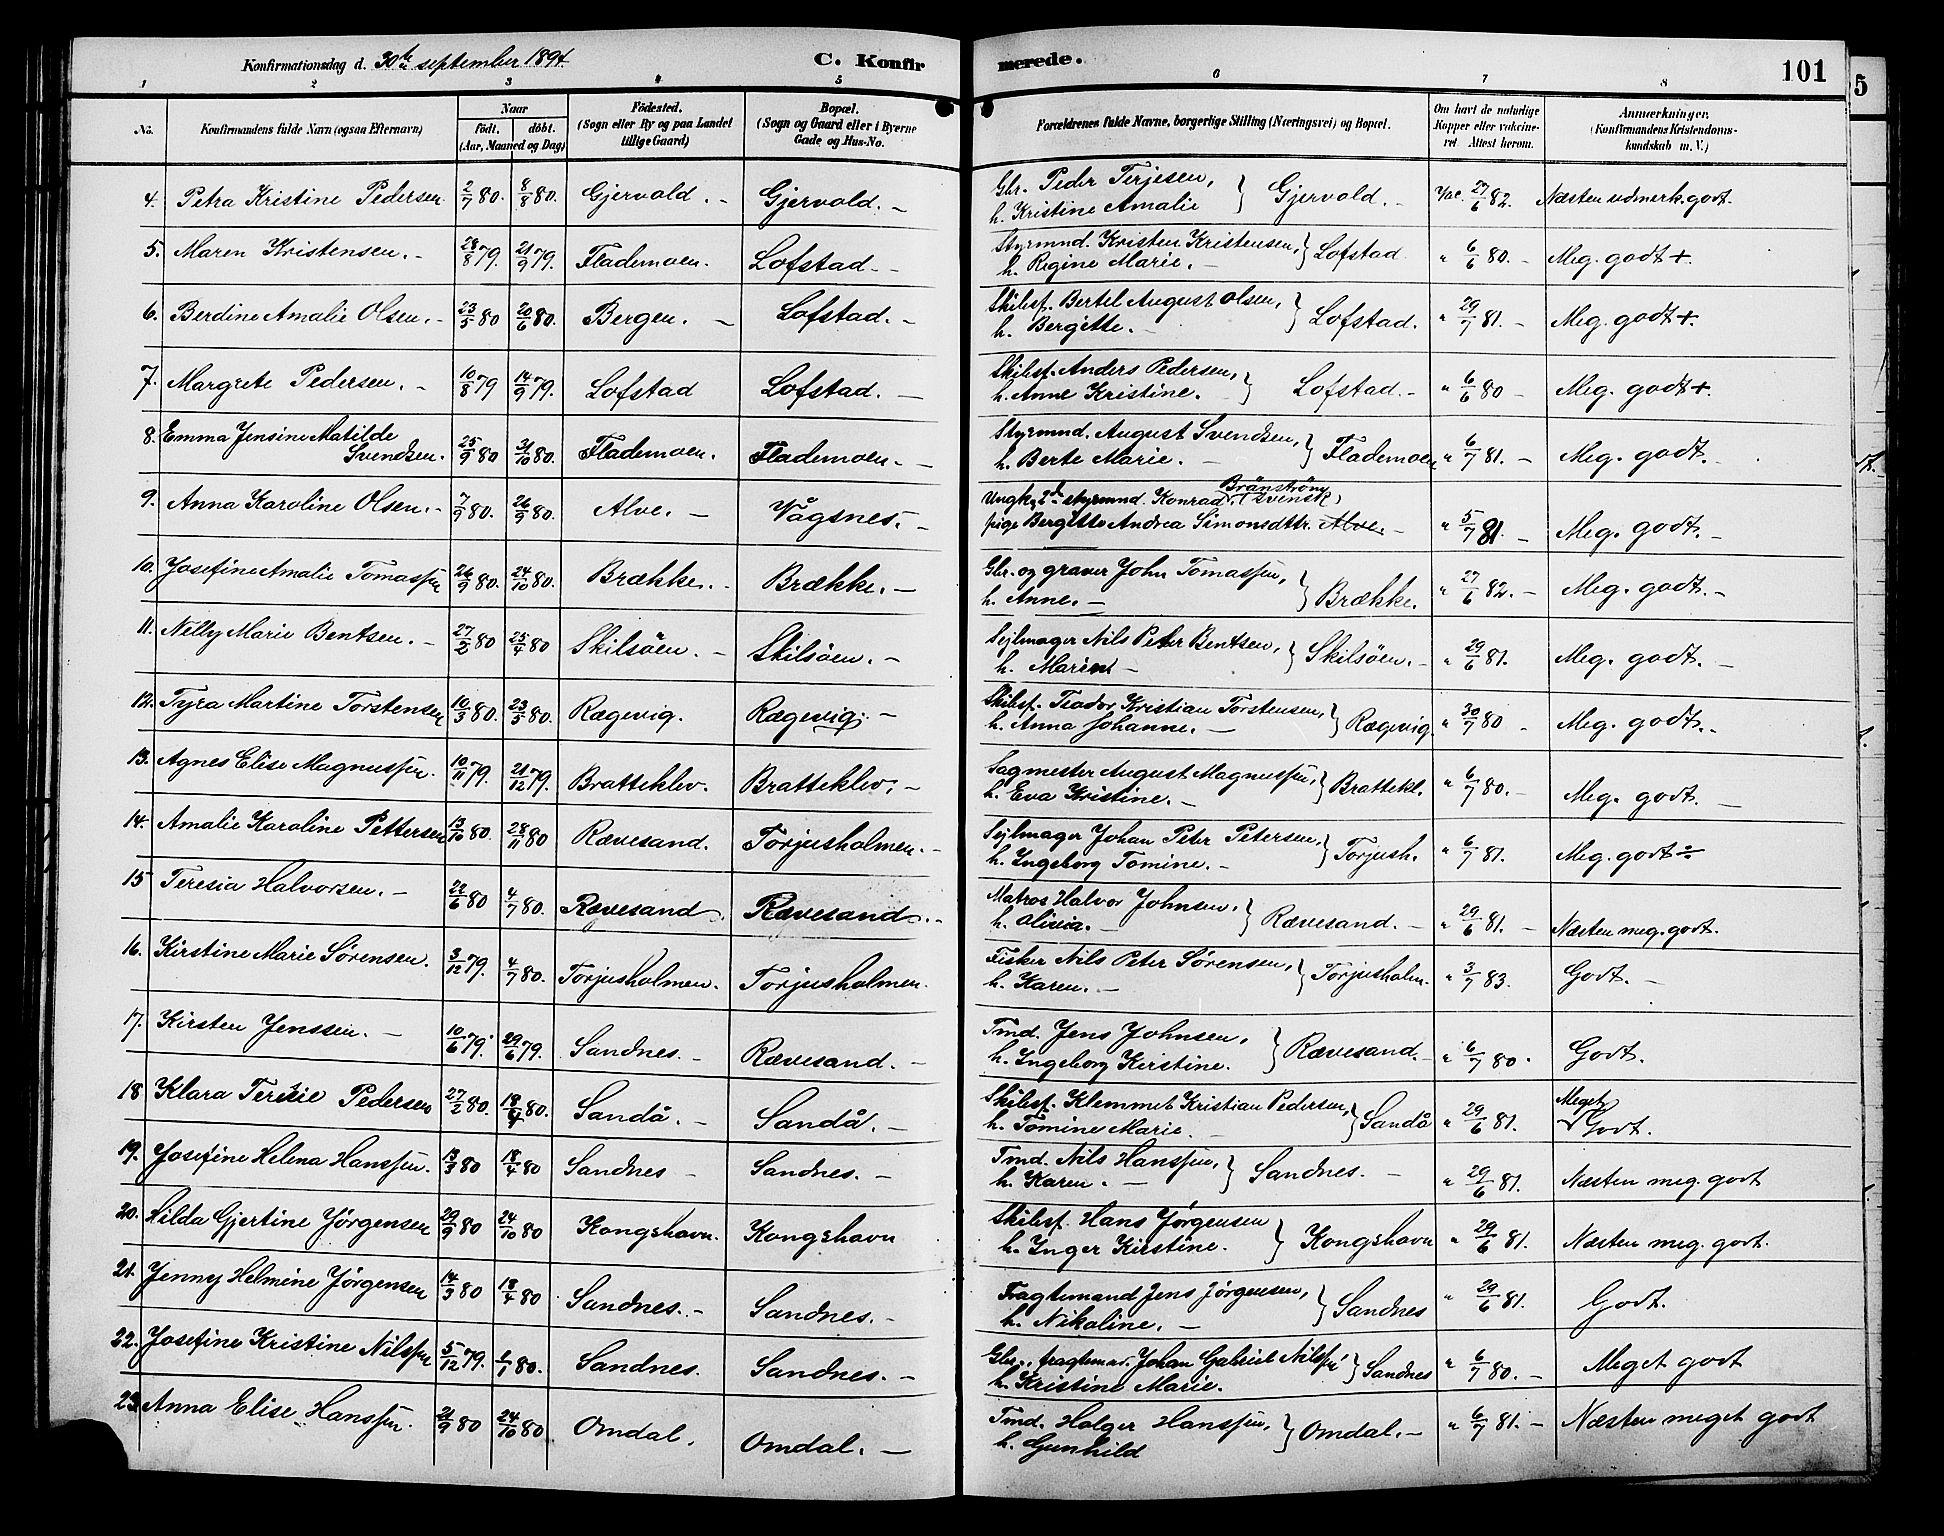 Konfirmationsdag d. 30te september 1894. C. Konfirmerede. 101
1 2 3 4 5 6 7 8
No. Konfirmandens fulde Navn (ogsaa Efternavn) Naar født, døbt. (Aar, Maaned og Dag) Fødested. (Sogn eller By og paa Landet tillige Gaard) Bopæl. (Sogn og Gaard eller i Byerne Gade og Hus-No. Forældrenes fulde Navne, borgerlige Stilling (Næringsvei) og Bopæl. Om havt de naturlige Kopper eller vakcineret Attest herom. Anmærkninger. (Konfirmandens Kristendomskundskab m. V.)
4. Petra Kristine Pedersen. 2/7 80. 8/8 80. Gjervold. - Gjervold. - Gbr. Peder Terjesen, h. Kristine Amalie } Gjervold. - Vac. 27/6 82. Næsten udmerk. godt.
5. Maren Kristensen. - 28/8 79. 21/9 79. Flademoen. Lofstad. - Styrmnd. Kristen Kristensen, h. Regine Marie. - } Lofstad. " 6/6 80. - Meg. godt +.
6. Berdine Amalie Olsen. - 23/5 80 20/6 80. Bergen. - Lofstad. - Skibsf. Bertel August Olsen, h. Bergitte. - } Lofstad. " 29/7 81. - Meg. godt +.
7. Margrete Pedersen. - 10/8 79 14/9 79. Lofstad Lofstad. - Skibsf. Anders Pedersen, h. Anne Kristine. } Lofstad. - " 6/6 80 - Meg. godt +.
8. Emma Jensine Matilde Svendsen. 25/9 80 31/10 80. Flademoen. Flademoen. - Styrmnd. August Svendsen, h. Berte Marie. - } Flademoen " 6/7 81. - Meg. godt. -
9. Anna Karoline Olsen. - 7/9 80. 26/9 80. Alve. - Vågsnes. - Ungk., 2d styrmnd. Konrad Brånstrøm (Svensk) pige Bergitte Andrea Simonsdttr. Alve. - " 5/7 81. - Meg. godt. -
10. Josefine Amalie Tomassen 26/9 80. 24/10 80. Brække. - Brække. - Gbr. og graver John Tomassen, h. Anne. - } Brække. " 27/6 82. - Meg. godt. -
11. Nelly Marie Bentsen. - 27/2 80 25/4 80 Skilsöen. - Skilsöen. - Sejlmager Nils Peter Bentsen, h. Maren - } Skilsöen. - " 29/6 81. Meg. godt. -
12. Tyra Martine Torstensen 10/3 80. 23/5 80. Rægevig. Rægevig. - Skibsf. Teador Kristian Torstensen, h. Anna Johanne. - } Rægevig. " 30/7 80 - Meg. godt. -
13. Agnes Elise Magnussen. 10/11 79. 21/12 79. Bratteklev. Bratteklev. - Sagmester August Magnussen, h. Eva Kristine. - } Brattekl. " 6/7 80. - Meg. godt. -
14. Amalie Karoline Pettersen 13/10 80. 28/11 80 Rævesand. Torjusholmen. - Sejlmager Johan Peter Petersen, h. Ingeborg Tomine. - } Torjush. " 6/7 81. Meg. godt ÷
15 Teresia Halvorsen. - 22/6 80 4/7 80. Rævesand. Rævesand. - Matros Halvor Johnsen, h. Olivia. - } Rævesand. - " 29/6 81. - Næsten meg. godt.
16. Kirstine Marie Sørensen. 3/12 79. 4/7 80. Torjusholmen. Torjusholmen. Fisker Nils Peter Sørensen, h. Karen. - } Torjusholm. " 3/7 83. Godt. -
17. Kirsten Jenssen. - 10/6 79. 29/6 79. Sandnes. - Rævesand. - Tmd. Jens Johnsen, h. Ingeborg Kirstine. } Rævesand. - " 6/7 80. Godt.
18 Klara Terisie Pedersen 27/2 80. 18/4 80. Sandå. - Sandå. - Skibsf. Klemmet Kristian Pedersen, h. Tomine Marie. - } Sandå " 29/6 81. Meget Godt.
19. Josefine Helena Hanssen. 13/3 80 18/4 80 Sandnes - Sandnes. - Tmd. Nils Hanssen, h. Karen. - } Sandnes. - " 29/6 81. Næsten meg. godt
20. Hilda Gjertine Jørgensen 29/9 80 24/10 80 Kongshavn. Kongshavn Skibsf. Hans Jørgensen h. Inger Kirstine. } Kongshavn " 29/6 81. Næsten meg. godt.
21. Jenny Helmine Jørgensen 14/3 80 18/4 80 Sandnes. - Sandnes. - Fragtemand Jens Jørgensen, h. Nikoline. - } Sandnes " 29/6 81. Godt.
22. Josefine Kristine Nilssen 5/12 79. 1/1 80. Sandnes. Sandnes. - Gbr., fragtem. Johan Gabriel Nilssen h. Kristine Marie. } Sandnes " 6/7 80. - Meget godt
23. Anna Elise Hanssen. 21/9 80 24/10 80 Omdal. Omdal. - Tmd. Holger Hanssen, h. Gunhild } Omdal. - " 6/7 81. - Næsten meget godt
5